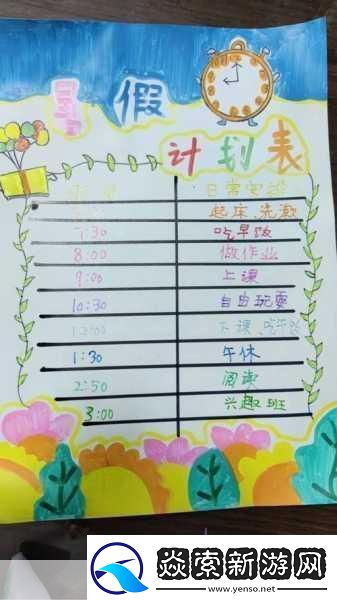 暑假
计划表
日常安排
起床、洗漱
7:30 吃早饭
8:00 做作业
9:00 上课
10:30 自由玩耍
12:00 下课、吃午饭
1:30 午休
2:50 阅读
3:00 兴趣班
焱索新游网
www.yenso.net